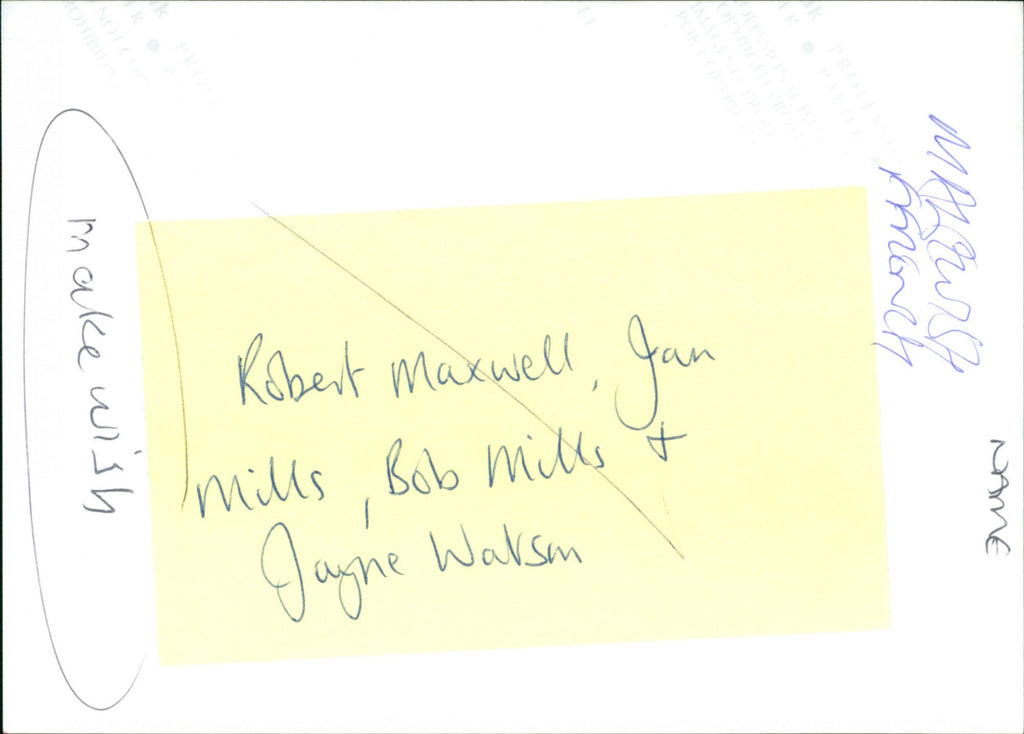 make wish
Robert Maxwell, Jan
Mills, Bob Mills +
Jayne Watson
NAME